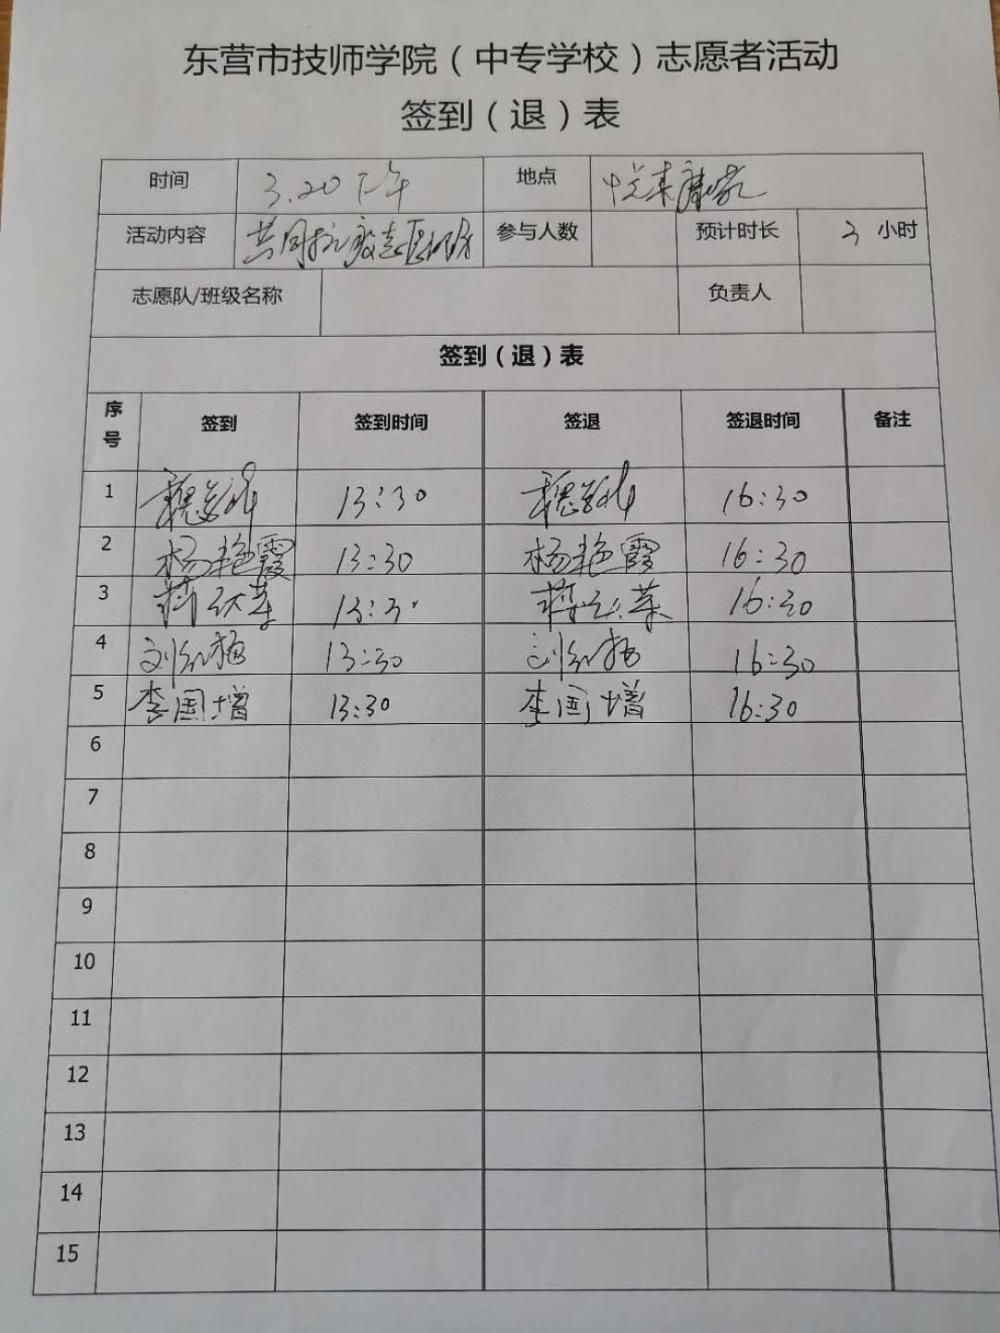 东营市技师学院（中专学校）志愿者活动
签到（退）表
时间 3.20 下午 地点 悦来康家
活动内容 共同抗疫志愿服务 参与人数 预计时长 3 小时
志愿队/班级名称 负责人
签到（退）表
序号 签到 签到时间 签退 签退时间 备注
1 13:30 16:30
2 杨艳霞 13:30 杨艳霞 16:30
3 13:3 16:30
4 刘红梅 13:30 刘红梅 16:30
5 李国增 13:30 李国增 16:30
6
7
8
9
10
11
12
13
14
15